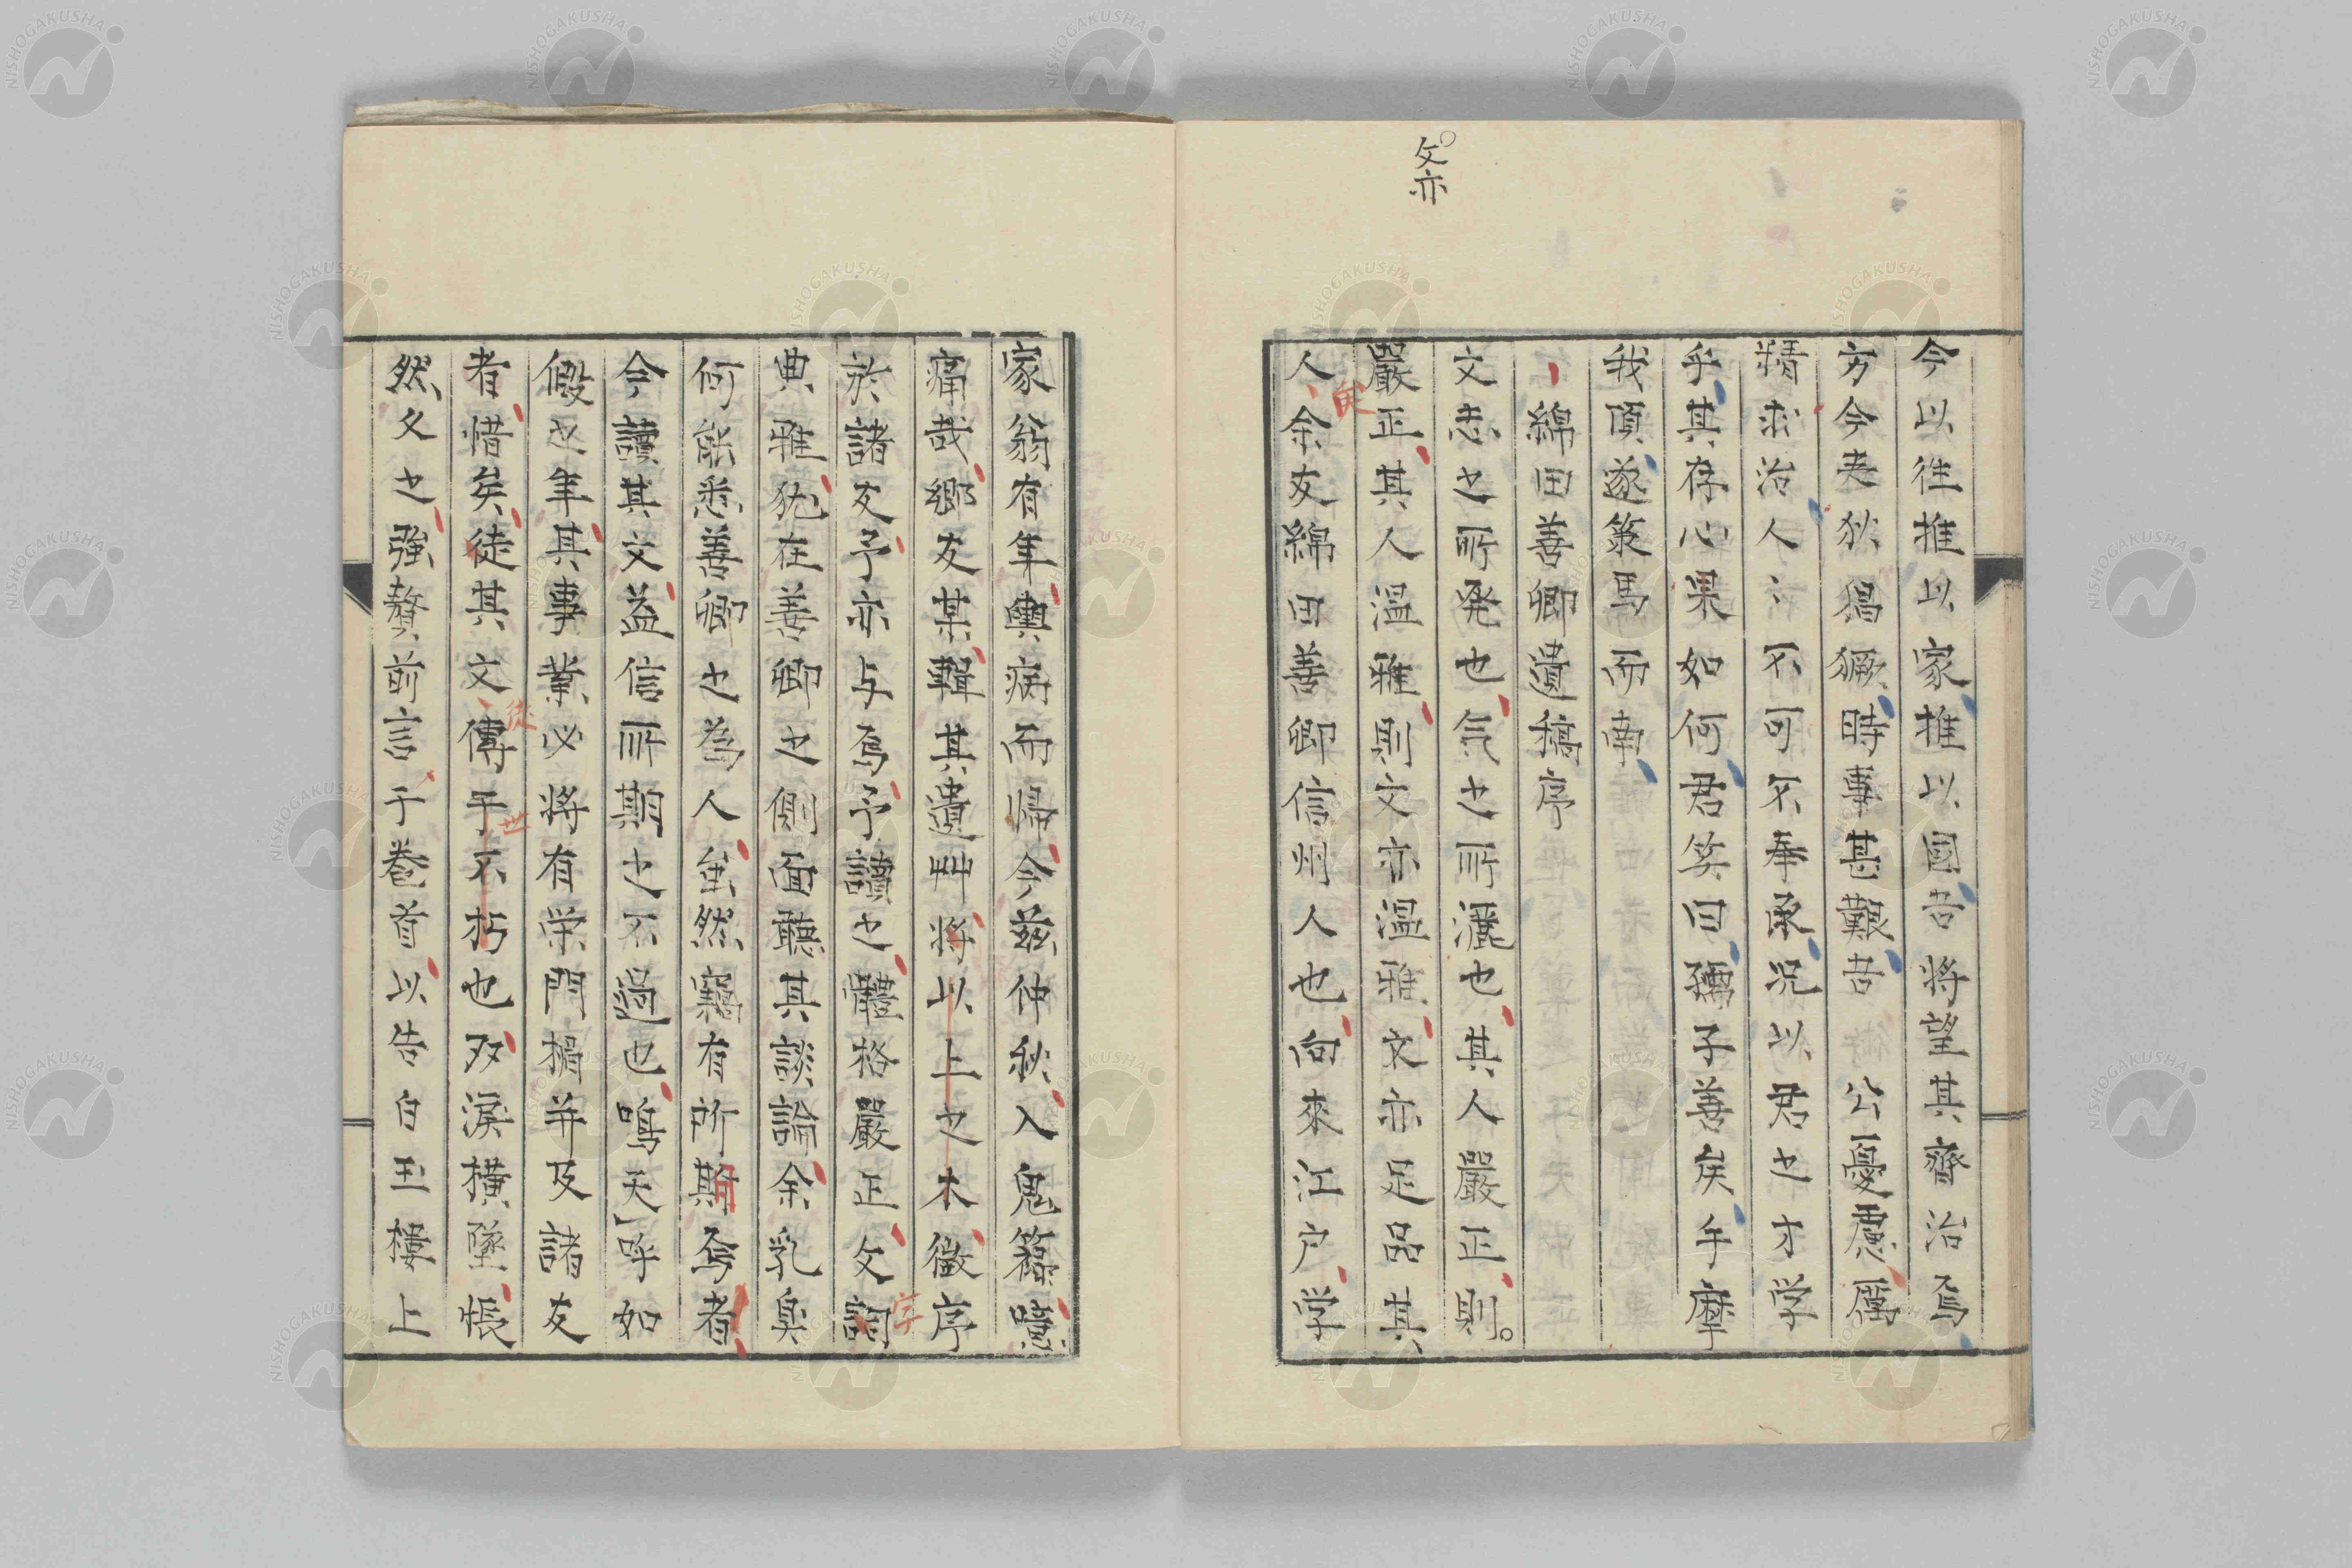 今以徃推以家推以國吾將望其齊治焉
方今夷狄猖獗時事甚艱吾 公憂慮厲
精求治人〻不可不奉承况以君之才学
乎其存心果如何君笑曰孺子善矣手摩
我頂遂策馬而南
綿田善卿遺稿序
文志之所発也気之所灑也其人嚴正則
文亦
嚴正其人温雅則文亦温雅文亦足品其
人余友綿田善卿信州人也向來江戸学
矣
家翁有年輿病而帰今茲仲秋入鬼籍噫
痛哉郷友某輯其遺艸將以上之木徴序
於諸友予亦与焉予讀之體格嚴正文詞
序
典雅犹在善卿之側面聽其談論余乳臭
何能悉善卿之為人虽然竊有所期焉者
今讀其文益信所期之不過也嗚天呼如
假之年其事業必將有栄門楣并及諸友
者惜矣徒其文傳于不朽也双涙橫墜悵
徒
世
然久之強贅前言于巻首以告白玉樓上